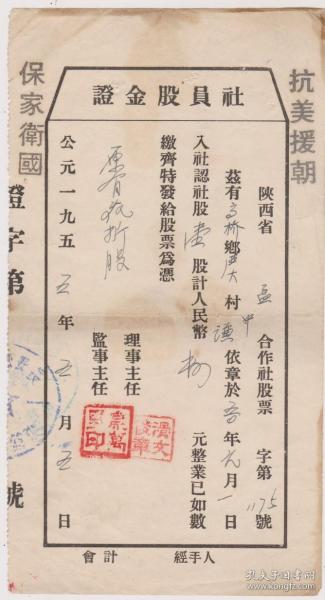 抗美援朝
保家衛國
社員股金證
陝西省 合作社股票 字第1175號
茲有高橋鄉嚴大村 依章於 年元月一日
入社認社股壹股計人民幣 元整業已如數
繳齊特發給股票為憑
理事主任
監事主任
公元一九五五年五月五日
經手人 會計
證字第 號
孔夫子旧书网